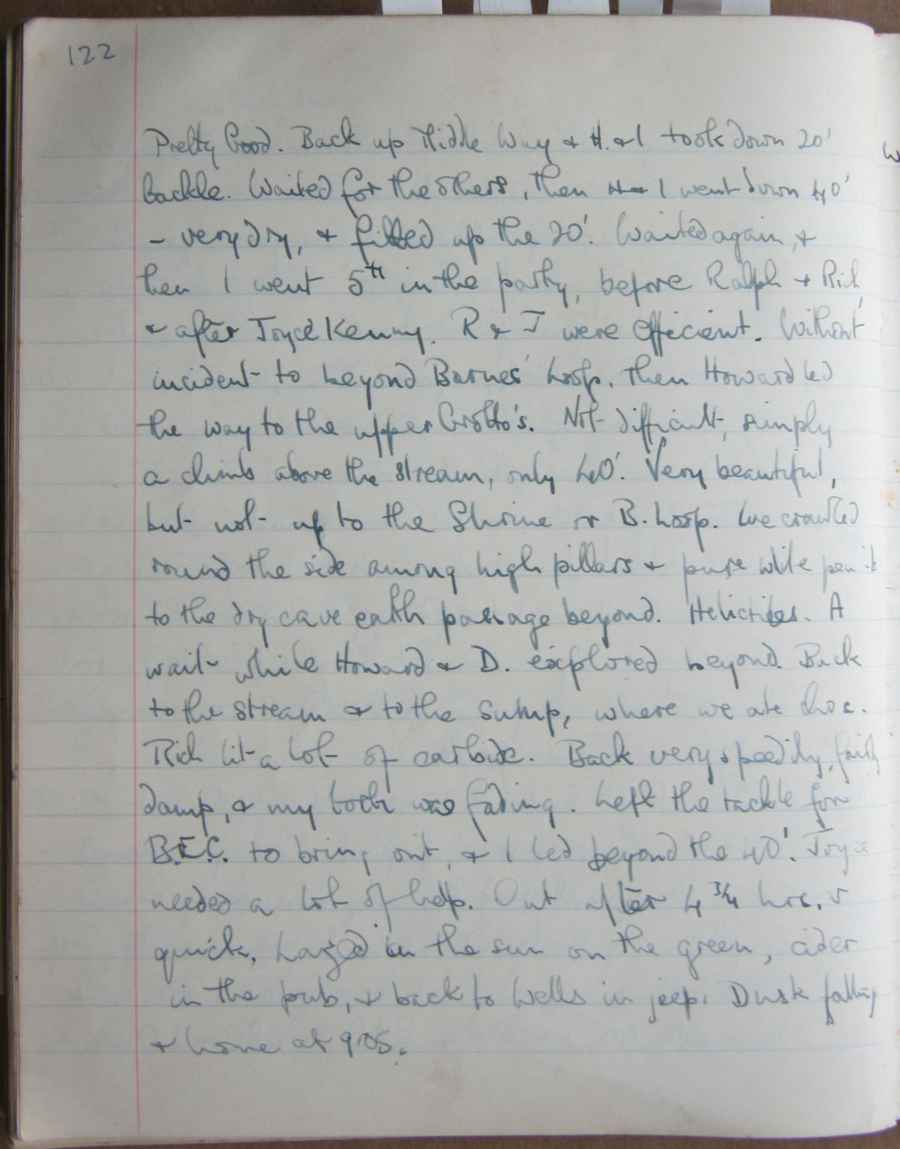 122
Pretty Good. Back up Middle Way & H. & I took down 20'
tackle. Waited for the others, then I went down 40'
- very dry, & fitted up the 20'. Waited again, &
then I went 5th in the party, before Ralph & Rich
& after Joyce Kenny. R & J were efficient. Without
incident to beyond Barnes' Loop. Then Howard led
the way to the upper Grotto's. Not difficult, simply
a climb above the stream, only 40'. Very beautiful,
but not up to the Shrine or B. Loop. We crawled
round the side among high pillars & pure white
to the dry cave earth passage beyond. Helictites. A
wait while Howard & D. explored beyond. Back
to the stream & to the sump, where we ate choc.
Rich lit a lot of carbide. Back very speedily, fairly
damp, & my torch was fading. Left the tackle for
B.E.C. to bring out, & I led beyond the 40'. Joyce
needed a lot of help. Out after 4 3/4 hrs. v
quick, lazed in the sun on the green, cider
in the pub, & back to Wells in jeep. Dusk falling
& home at 9.05.